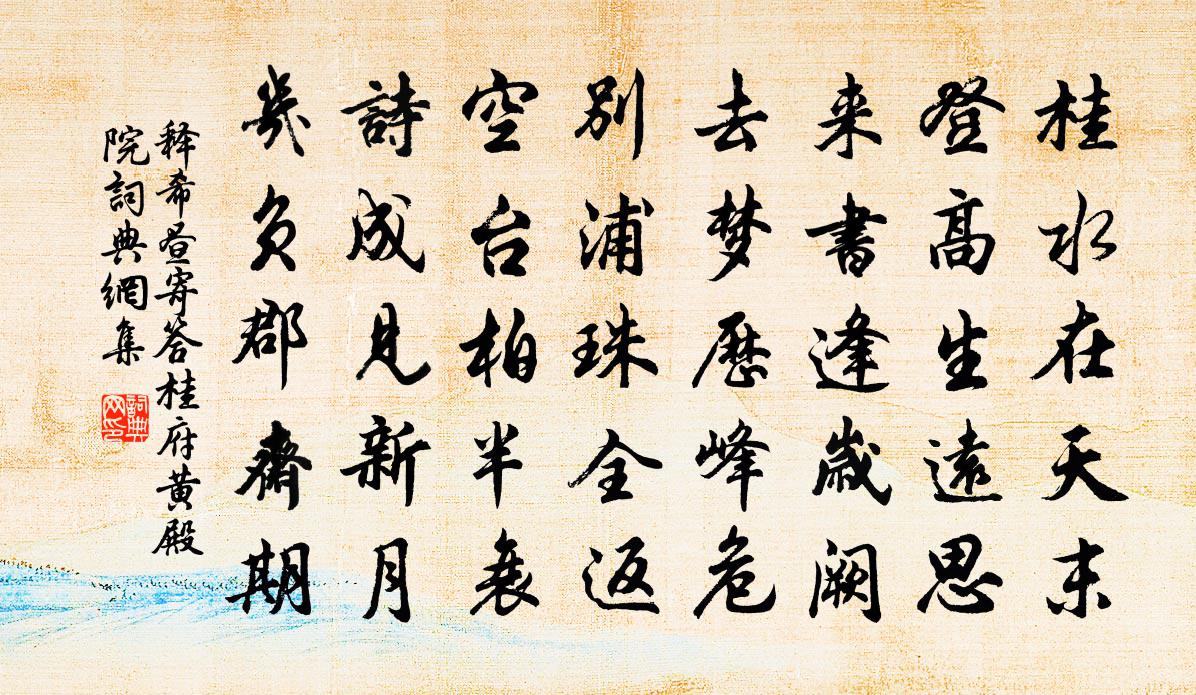 桂水在天末
登高生遠思
来書逢歲闕
去梦歷峰危
别浦珠全返
空台柏半衰
詩成見新月
幾负郡齋期
释希昼寄答桂府黄殿
院詞典網集
詞典
网印